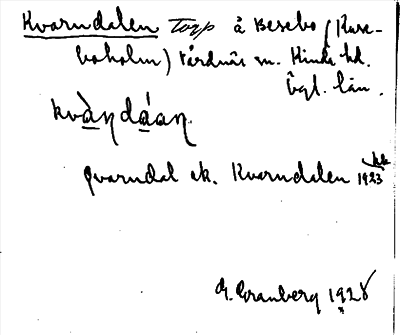 Kvarndalen Torp å Besebo (Ruse-
boholm) Vårdnäs sn. Kinda hd.
Ögl. län.
kvàṇdáaṇ
Qvarndal ek. Kvarndalen hk 1923
G. Granberg 1928